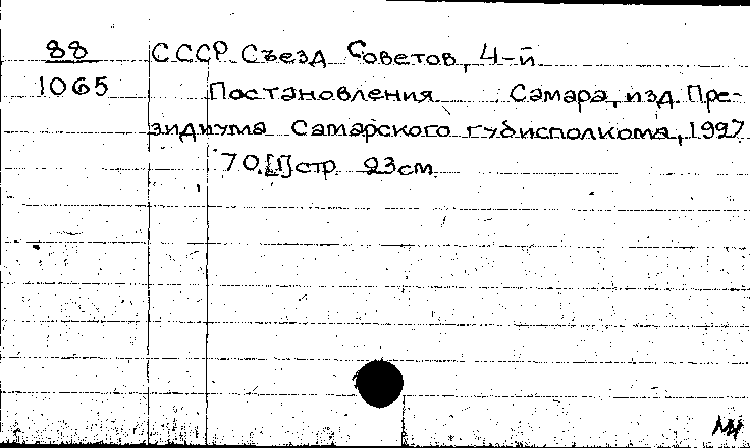 88 СССР. Съезд Советов, 4-й
1065 Постановления Самара, изд. Пре-
зидиума Самарского губисполкома, 1927
70,[1] стр. 23 см.